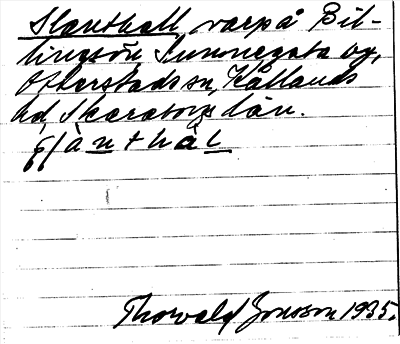 Slänthall, varpå Bil-
lingsön, Sunnegata o,
Otterstads sn, Kållands
hd, Skaraborgs län.
slànthàl
Thorvald Jonsson 1935.